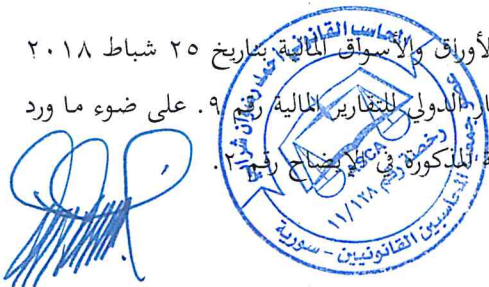 الأوراق والأسواق المالية بتاريخ ٢٥ شباط ٢٠١٨
الدولي للتقارير المالية رقم ٩. على ضوء ما ورد
المذكورة في الإيضاح رقم ٢.
المحاسب القانوني أحمد رضوان
رخصة رقم ١١/١٢٨
المحاسبين القانونيين - سورية